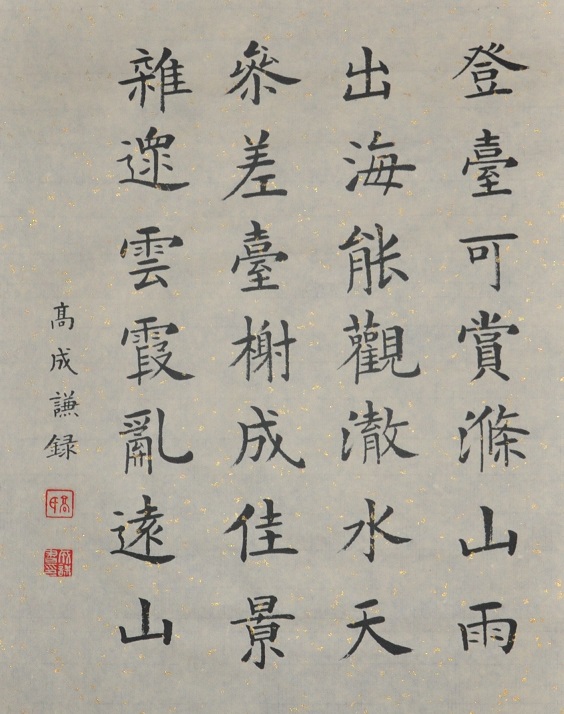 登臺可賞滌山雨
出海能觀澈水天
參差臺榭成佳景
雜遝雲霞亂遠山
高成謙録